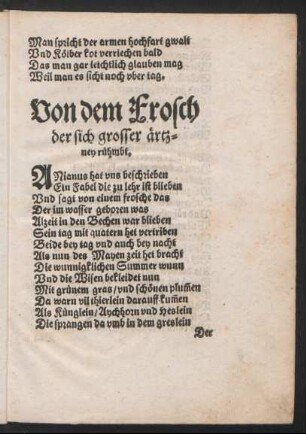 Man spricht der armen hochfart gwalt
Vnd Köiber kot verriechen bald
Das man gar leichtlich glauben mag
Weil man es sicht noch vber tag.
Von dem Frosch
der sich grosser ärtz-
ney rühmbt.
ANianus hat vns beschrieben
Ein Fabel die zu lehr ist blieben
Vnd sagt von einem frosche das
Der im wasser geboren was
Alzeit in den Bechen war blieben
Sein tag mit quatern het vertriben
Beide bey tag vnd auch bey nacht
Als nun des Mayen zeit het bracht
Die wunnigklichen Summer wunn
Vnd die Wisen bekleidet nun
Mit grünem gras/vnd schönen plumen
Da warn vil thierlein darauff kum̃en
Als Künglein/Aychhorn vnd Heslein
Die sprangen da vmb in dem greslein
Der